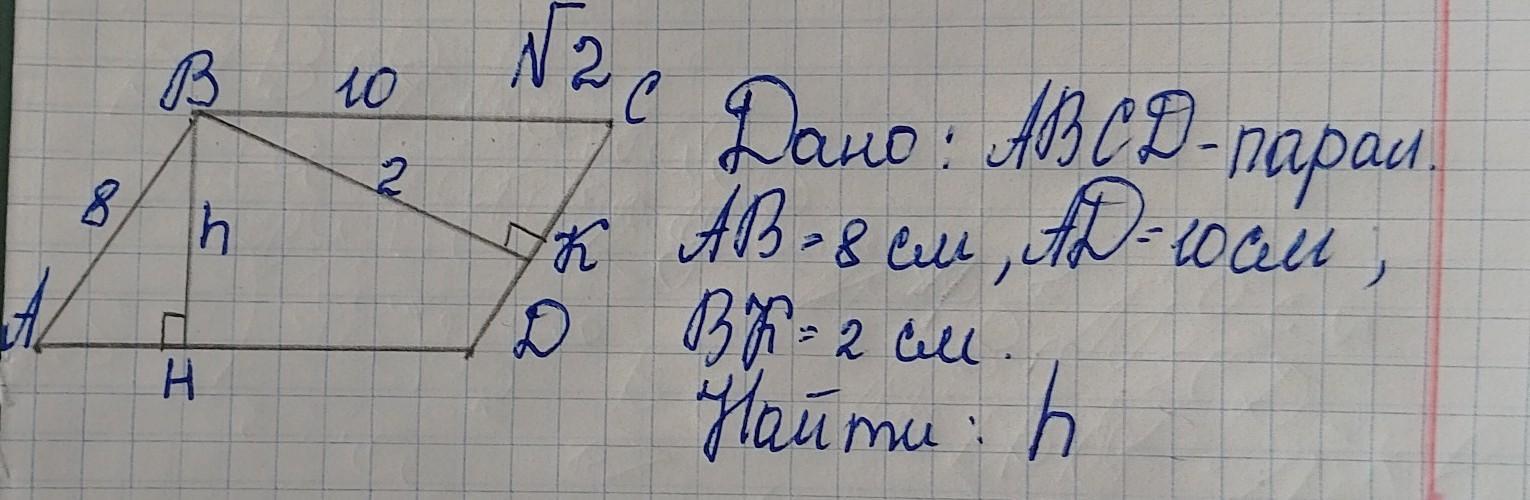 √2
B 10 C
8 2
h
K
A
H
D
Дано: ABCD-парал.
AB=8 см, AD=10 см,
BK=2 см.
Найти: h